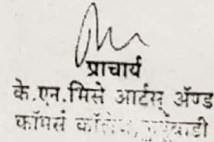 प्राचार्य
के.एन.भिसे आर्टस् ॲण्ड
कॉमर्स कॉलेज,